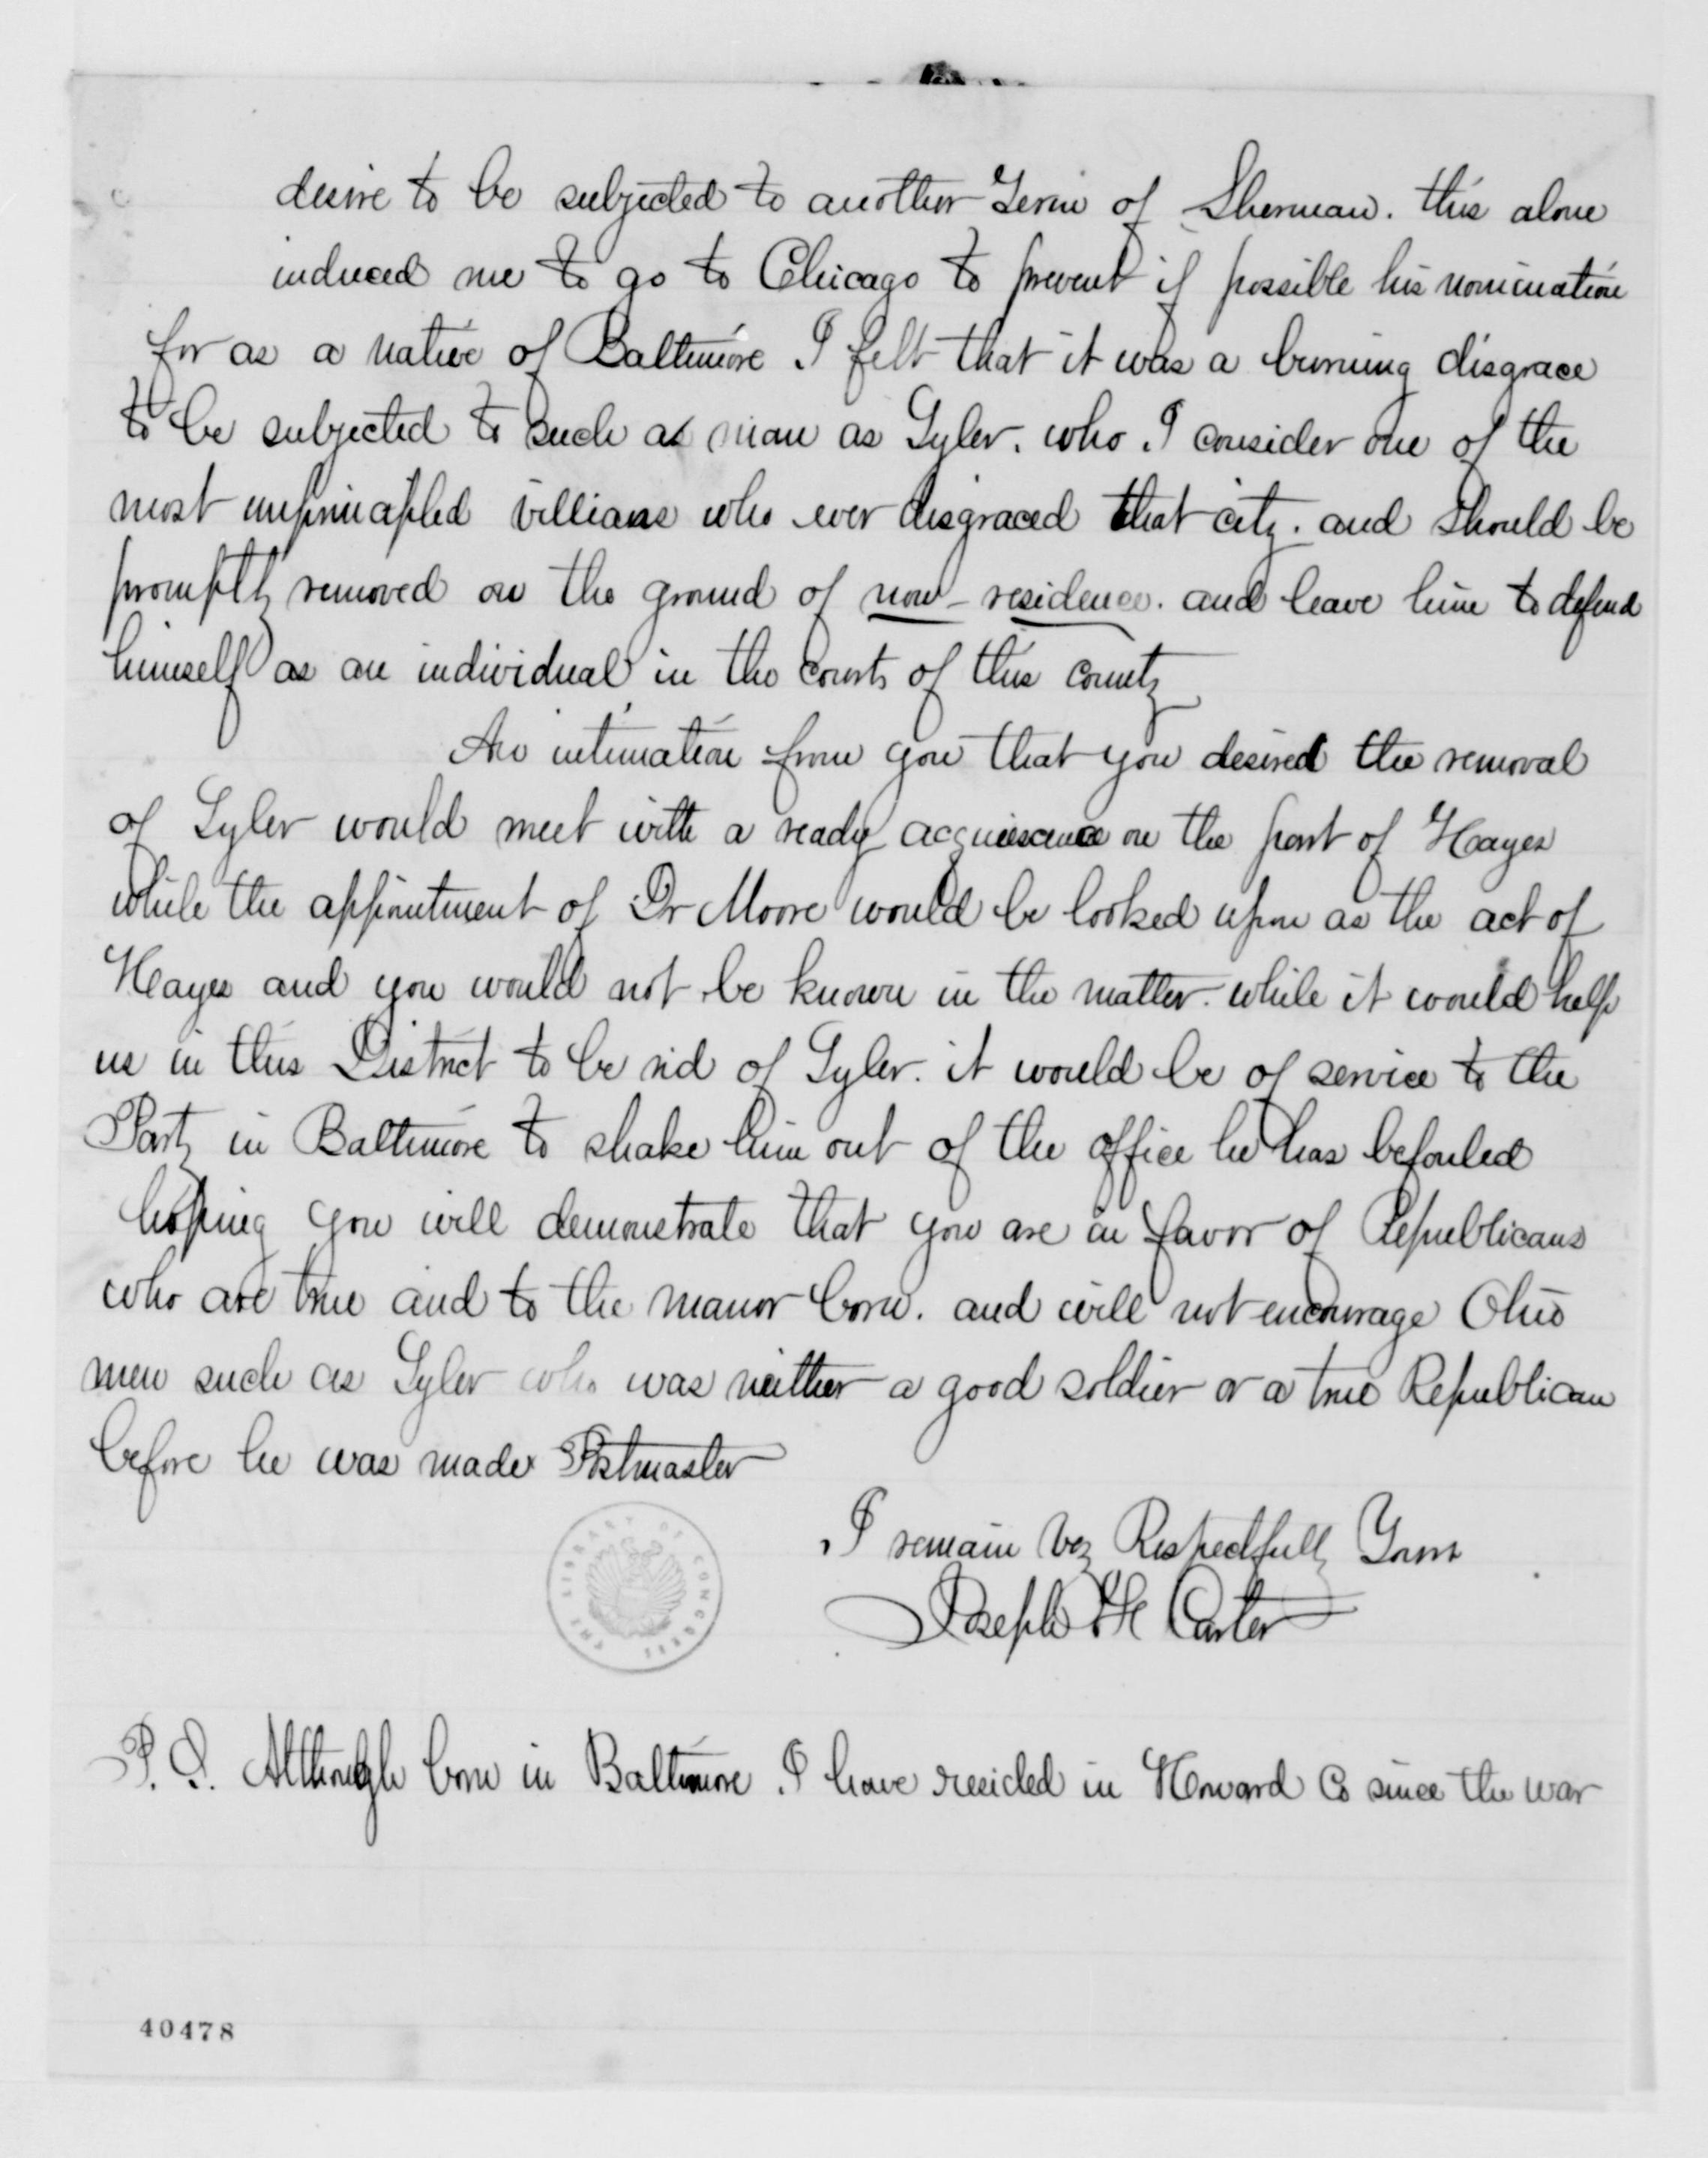 desire to be subjected to another Term of Sherman. this alone
induced me to go to Chicago to prevent if possible his nomination
for as a native of Baltimore I felt that it was a burning disgrace
to be subjected to such a man as Tyler. who I consider one of the
most unprincipled villians who ever disgraced that city. and should be
promptly removed on the ground of non-residence. and leave him to defend
himself as an individual in the courts of this county
An intimation from you that you desired the removal
of Tyler would meet with a ready acquiescence on the part of Hayes
while the appointment of Dr Moore would be looked upon as the act of
Hayes and you would not be known in the matter. while it would help
us in this District to be rid of Tyler. it would be of service to the
Party in Baltimore to shake him out of the office he has befouled
hoping you will demonstrate that you are in favor of Republicans
who are true and to the manor born. and will not encourage Ohio
men such as Tyler who was neither a good soldier or a true Republican
before he was made Postmaster
I remain very Respectfully Yours
Joseph H Carter
THE LIBRARY OF CONGRESS
P.S. Although born in Baltimore I have resided in Howard Co since the war
40478